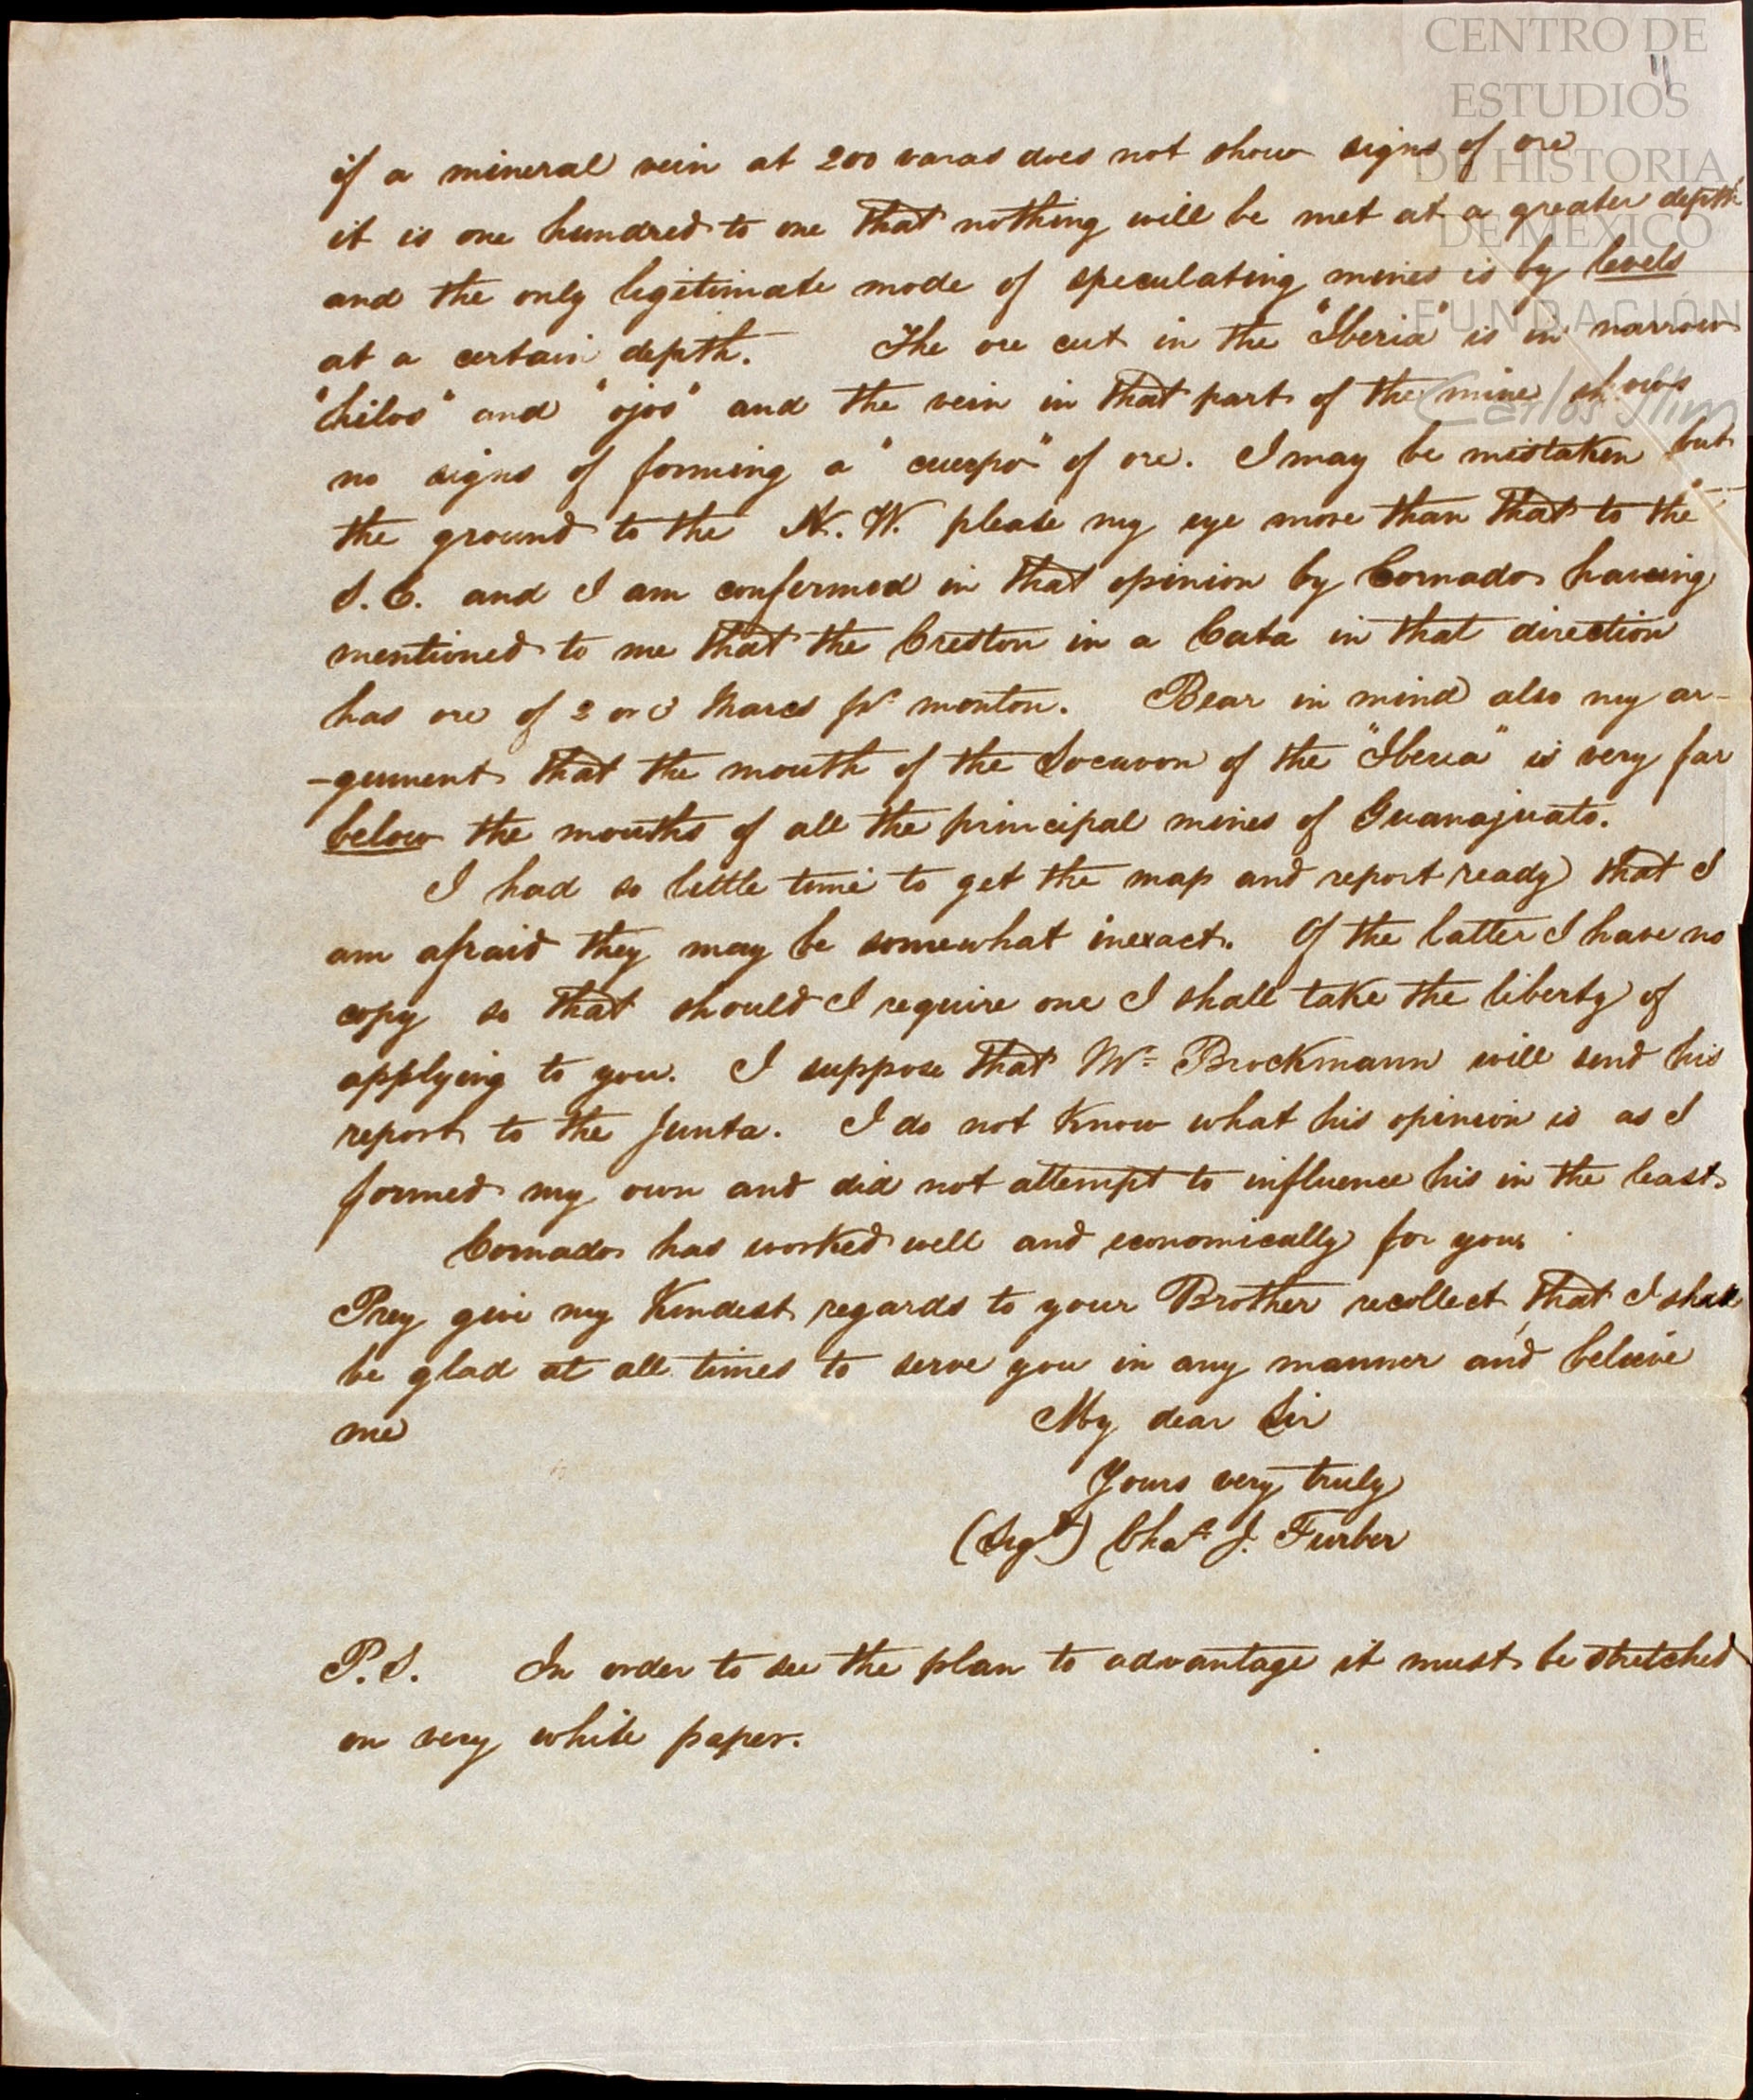 CENTRO DE
ESTUDIOS
DE HISTORIA
DE MEXICO
FUNDACIÓN
Carlos Slim
11
if a mineral vein at 200 varas does not show signs of ore
it is one hundred to one that nothing will be met at a greater depth
and the only legitimate mode of speculating mines is by levels
at a certain depth. The ore cut in the "Iberia" is in narrow
"hilos" and "ojos" and the vein in that part of the mine shows
no signs of forming a "cuerpo" of ore. I may be mistaken but
the ground to the N.W. please my eye more than that to the
S.E. and I am confirmed in that opinion by Cornado having
mentioned to me that the Creston in a Cata in that direction
has ore of 2 or 3 Marcs pr monton. Bear in mind also my ar-
-gument that the mouth of the Socavon of the "Iberia" is very far
below the mouths of all the principal mines of Guanajuato.
I had so little time to get the map and report ready that I
am afraid they may be somewhat inexact. Of the latter I have no
copy so that should I require one I shall take the liberty of
applying to you. I suppose that Mr Brockmann will send his
report to the Junta. I do not Know what his opinion is as I
formed my own and did not attempt to influence his in the least.
Cornado has worked well and economically for you.
Pray give my Kindest regards to your Brother recollect that I shall
be glad at all times to serve you in any manner and believe
me My dear Sir
Yours very truly
(Sigd) Chas J. Furber
P.S. In order to see the plan to advantage it must be stretched
on very white paper.